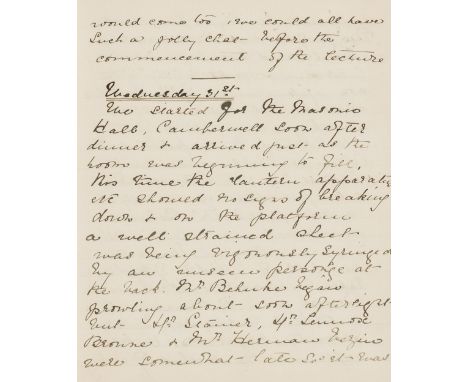 would come too, we could all have
such a jolly chat before the
commencement of the lecture
Wednesday 31st
We started for the Masonic
Hall, Camberwell soon after
dinner & arrived just as the
room was beginning to fill.
This time the lantern apparatus
etc showed no signs of breaking
down & on the platform
a well strained sheet
was being vigorously syringed
by an unseen personage at
the back. Mr Behnke began
prowling about soon after eight
but Dr Stainer, Dr Lennox
Browne & Mr Herman Vezin
were somewhat late so it was